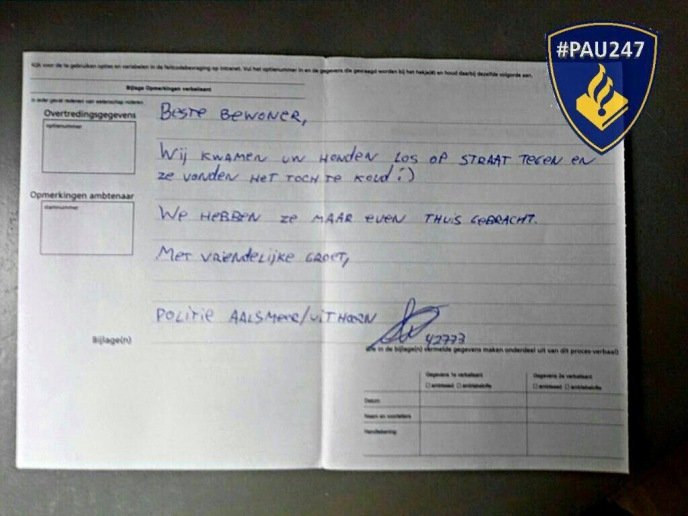 #PAU247
Kijk voor de te gebruiken opties en variabelen in de feitcodebevraging op Intranet. Vul het optienummer in en de gegevens die gevraagd worden bij het hekje(#) en houd daarbij dezelfde volgorde aan.
Bijlage Opmerkingen verbalisant
In ieder geval redenen van wetenschap noteren
Overtredingsgegevens
optienummer
BESTE BEWONER,
WIJ KWAMEN UW HONDEN LOS OP STRAAT TEGEN EN
ZE VONDEN HET TOCH TE KOUD :)
Opmerkingen ambtenaar
WE HEBBEN ZE MAAR EVEN THUIS GEBRACHT.
MET VRIENDELIJKE GROET,
POLITIE AALSMEER/UITHOORN
42773
Bijlage(n)
in de bijlage(n) vermelde gegevens maken onderdeel uit van dit proces-verbaal)
Gegevens 1e verbalisant Gegevens 2e verbalisant
Datum
Naam en voorletters
Handtekening